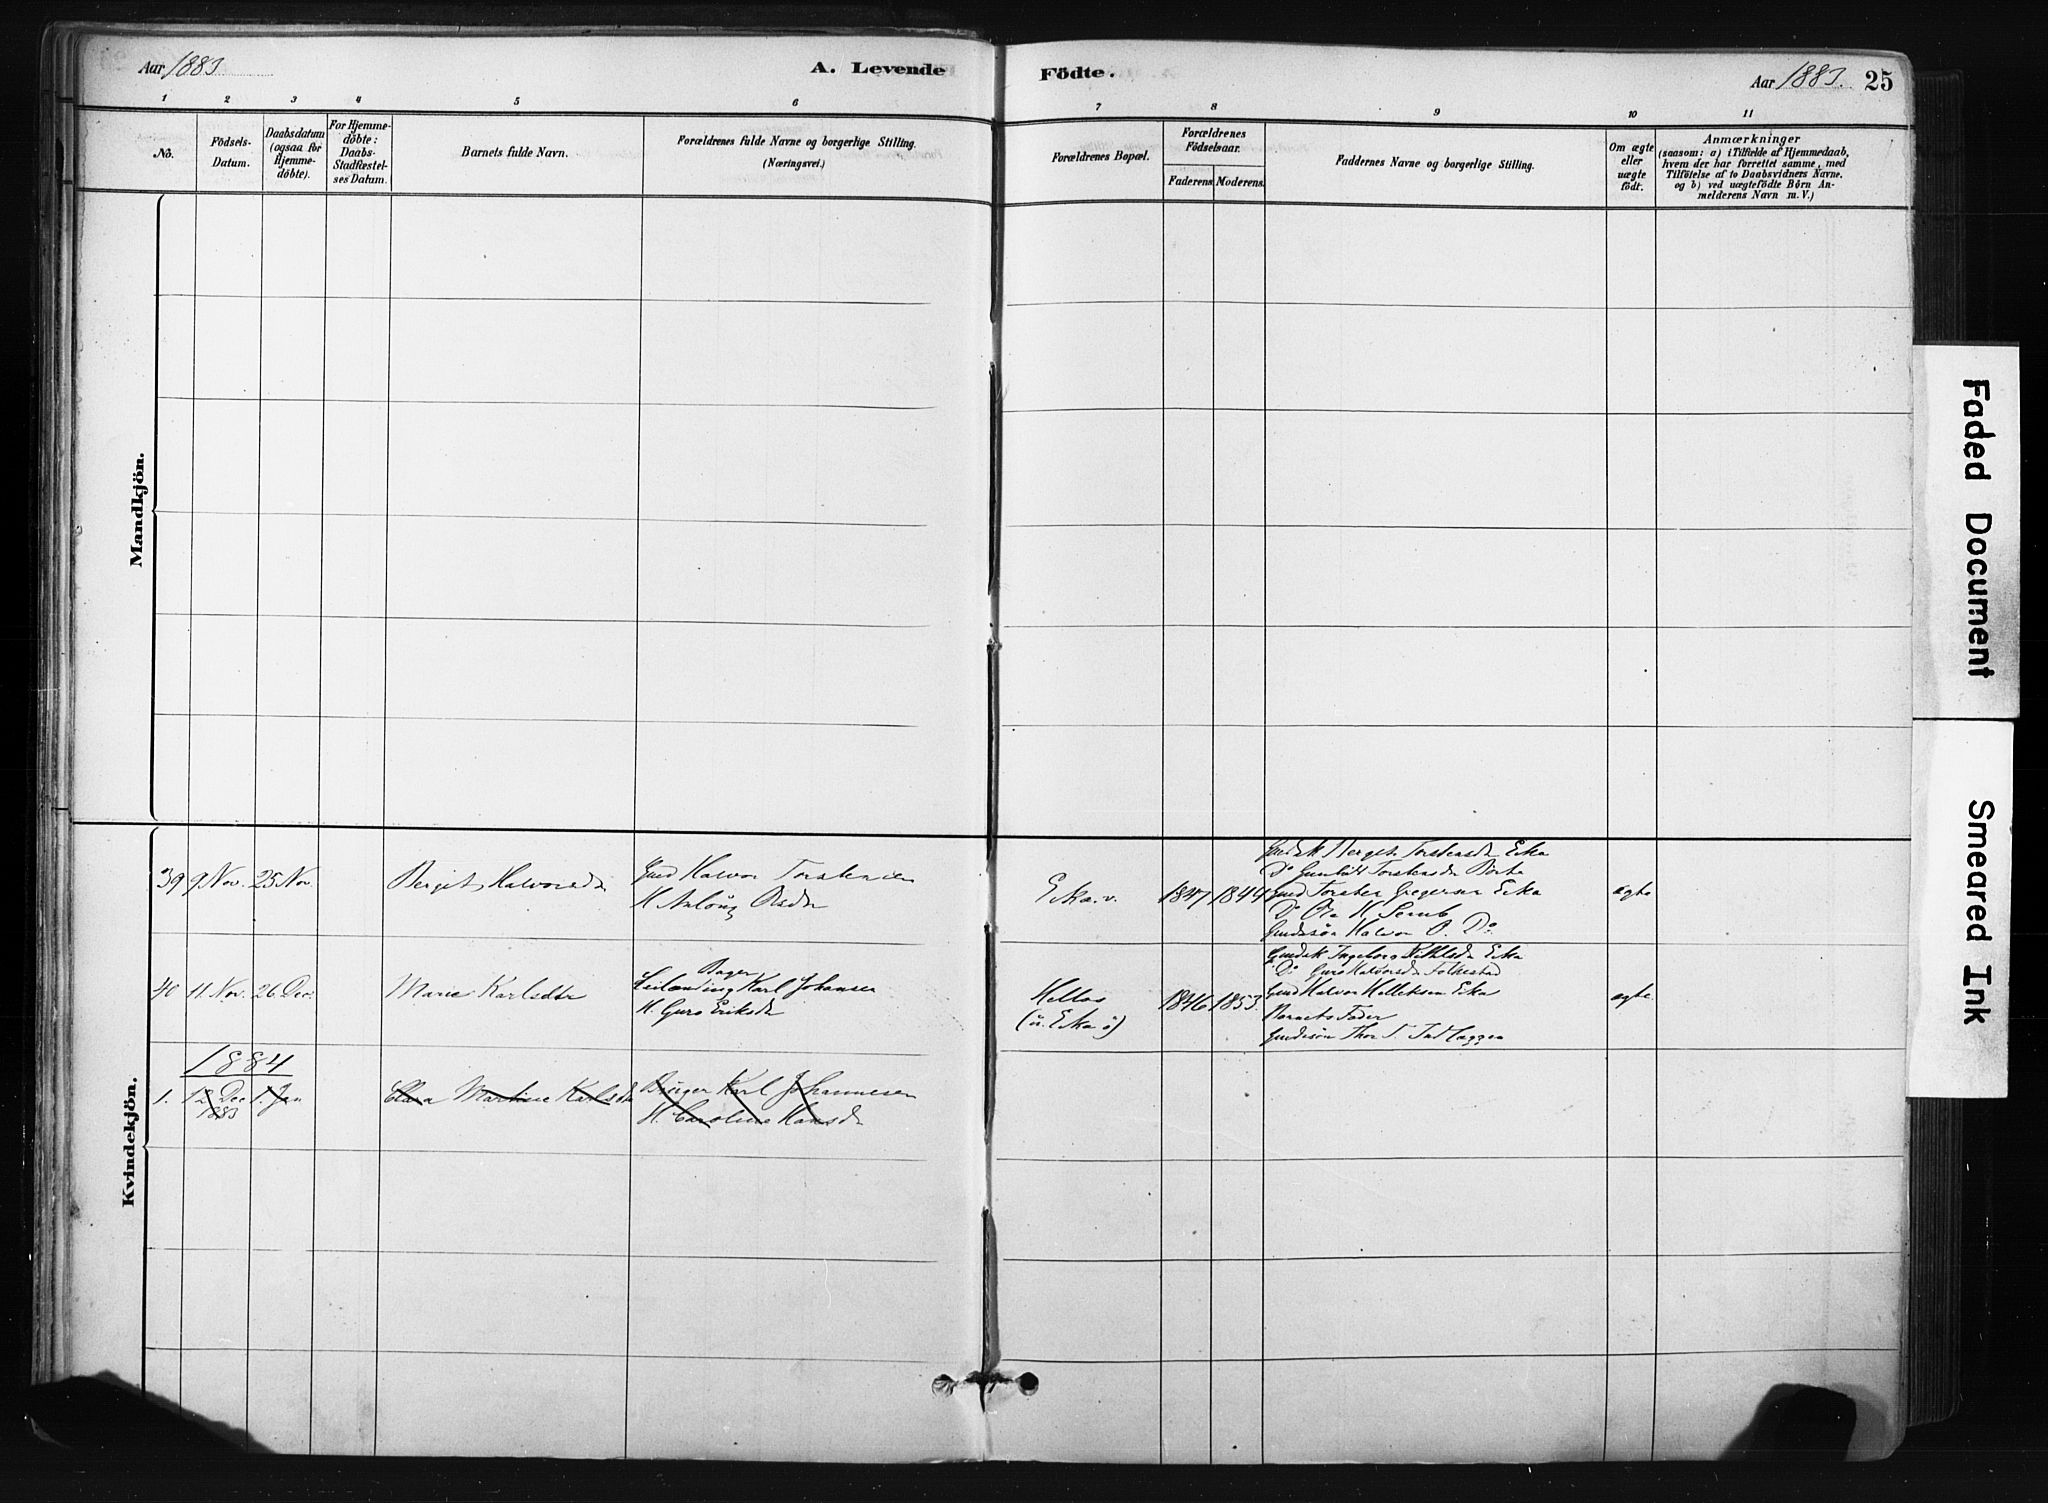 Aar 1883
A. Levende Födte.
Aar 1883.
25
1 2 3 4 5 6 7 8 9 10 11
No.
Födsels-
Datum.
Daabsdatum
(ogsaa for
Hjemme-
döbte).
For Hjemme-
döbte:
Daabs-
Stadfæstel-
ses Datum.
Barnets fulde Navn.
Forældrenes fulde Navne og borgerlige Stilling.
(Næringsvei.)
Forældrenes Bopæl.
Forældrenes
Födselsaar.
Faderens. Moderens.
Faddernes Navne og borgerlige Stilling.
Om ægte
eller
uægte
födt.
Anmærkninger
(saasom: a) i Tilfælde af Hjemmedaab,
hvem der har forrettet samme, med
Tilföielse af to Daabsvidners Navne.
og b) ved uægtefödte Börn An-
melderens Navn m. V.)
Mandkjön.
Kvindekjön.
39 9 Nov. 25 Nov. Berget Halvorsdr
Gmd Halvor Torstensen
H. Aslaug Olsdr
Eika. v. 1847 1844
Gmdsk Berget Torstensdr Eika
Do Gunhild Torstensdr
Gmd Torsten Gregersen Eika
Do Ole H.
Gmdssön Halvor O. Do
ægte
40 11 Nov. 26 Dec. Marie Karlsdtr
Bager
Karl Johansen
H. Guro Eriksdr
Hellas
(u. Eika ö)
1846 1853.
Gmdsk Ingeborg Eika
Do Guro Halvorsdr Folkestad
Gmd Halvor Helleksen Eika
Barnets Fader
Gmdssön Thor T.
ægte.
1884
1. 12 Dec 1. Jan
1883
Clara Martine Karlsdr
Karl Johannesen
H. Caroline Hansdr
Faded Document
Smeared Ink